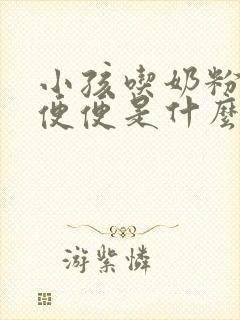 小孩喫奶粉
便便是什麼
游紫憐